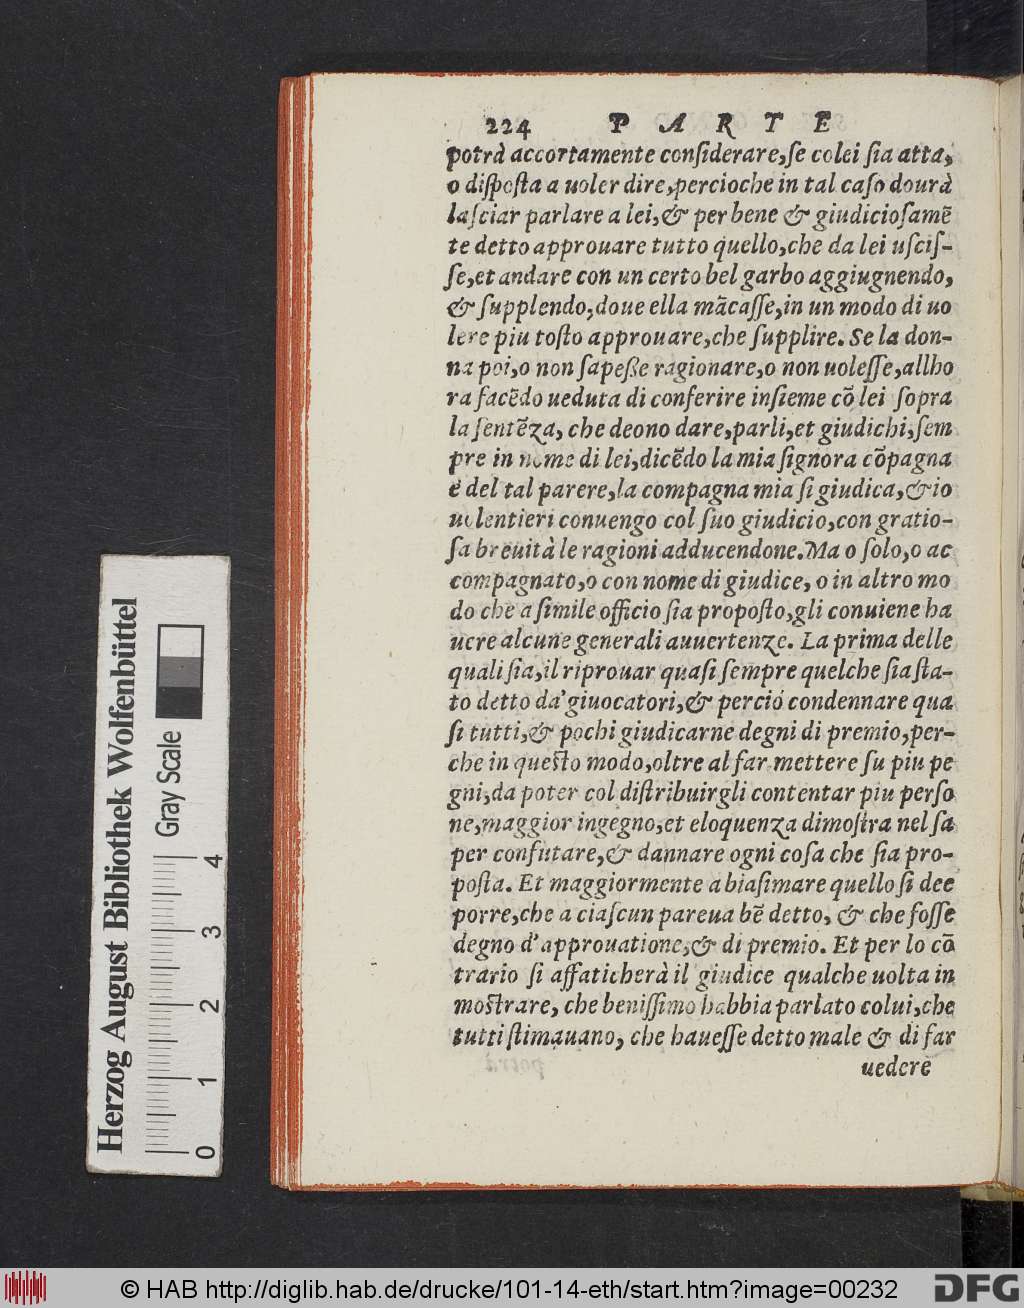 224 PARTE
potrà accortamente conſiderare,ſe colei ſia atta,
o diſpoſta a uoler dire,percioche in tal caſo dourà
laſciar parlare a lei,& per bene & giudicioſamẽ
te detto approuare tutto quello,che da lei uſciſ-
ſe,et andare con un certo bel garbo aggiugnendo,
& ſupplendo,doue ella mãcaſſe,in un modo di uo
lere piu toſto approuare,che ſupplire. Se la don-
na poi,o non ſapeße ragionare,o non uoleſſe,allho
ra facẽdo ueduta di conferire inſieme cõ lei ſopra
la ſentẽza, che deono dare,parli,et giudichi,ſem
pre in nome di lei,dicẽdo la mia ſignora cõpagna
è del tal parere,la compagna mia ſi giudica,& io
uolentieri conuengo col ſuo giudicio,con gratio-
ſa breuità le ragioni adducendone.Ma o ſolo,o ac
compagnato,o con nome di giudice, o in altro mo
do che a ſimile officio ſia propoſto,gli conuiene ha
uere alcune generali auuertenze. La prima delle
quali ſia,il riprouar quaſi ſempre quelche ſia ſta-
to detto da' giuocatori,& perciò condennare qua
ſi tutti,& pochi giudicarne degni di premio,per-
che in queſto modo,oltre al far mettere ſu piu pe
gni,da poter col diſtribuirgli contentar piu perſo
ne,maggior ingegno,et eloquenza dimoſtra nel ſa
per confutare,& dannare ogni coſa che ſia pro-
poſta. Et maggiormente a biaſimare quello ſi dee
porre,che a ciaſcun pareua bẽ detto, & che foſſe
degno d'approuatione,& di premio. Et per lo cõ
trario ſi affaticherà il giudice qualche uolta in
moſtrare, che beniſſimo habbia parlato colui,che
tutti ſtimauano, che haueſſe detto male & di far
uedere
Herzog August Bibliothek Wolfenbüttel
Gray Scale
0 1 2 3 4
© HAB http://diglib.hab.de/drucke/101-14-eth/start.htm?image=00232
DFG